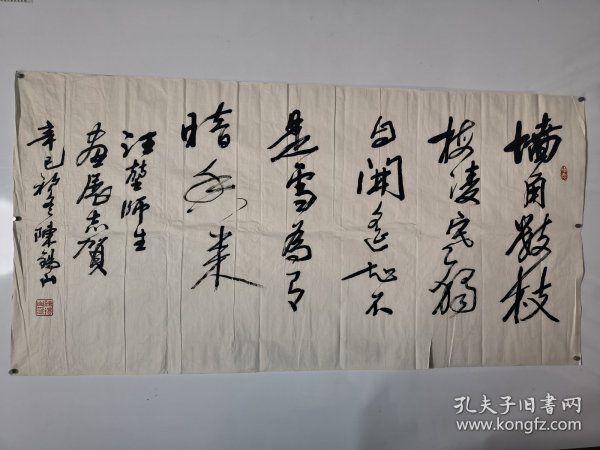 墙角数枝
梅凌寒独
自开遥知不
是雪为有
暗香来
师生
画展志贺
辛巳初冬陈锡山
孔夫子旧书网
www.kongfz.com